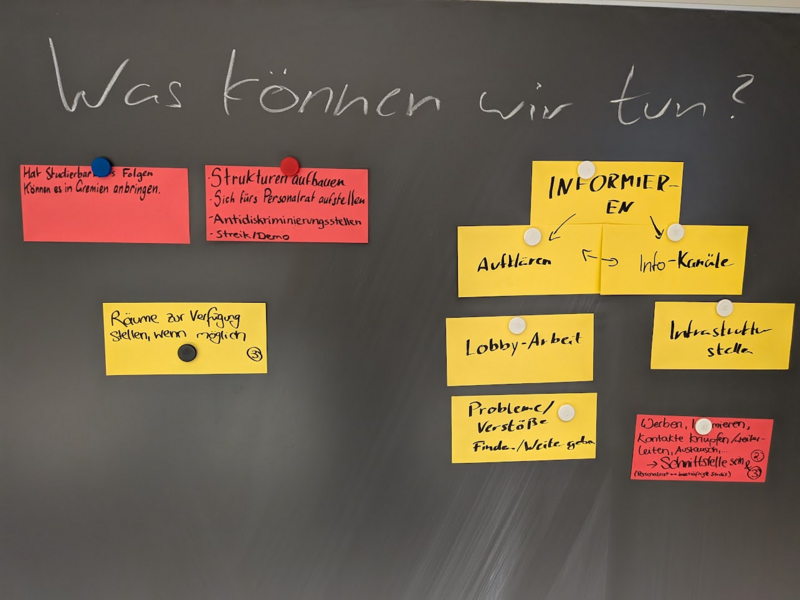 Was können wir tun?
Hat Studierbar Folgen
Können es in Gremien anbringen.
·Strukturen aufbauen
·Sich fürs Personalrat aufstellen
-Antidiskriminierungsstellen
-Streik/Demo
INFORMIER-
EN
Aufklären
Info-Kanäle
Räume zur Verfügung
stellen, wenn möglich
③
Lobby-Arbeit
Infrastruktur
stellen
Probleme/
Verstöße
Finden/Weitergeben
Werben,
Kontakte knüpfen/weiter-
leiten, Austausch,...
→ Schnittstelle sein ②
③
(Personalrat ↔